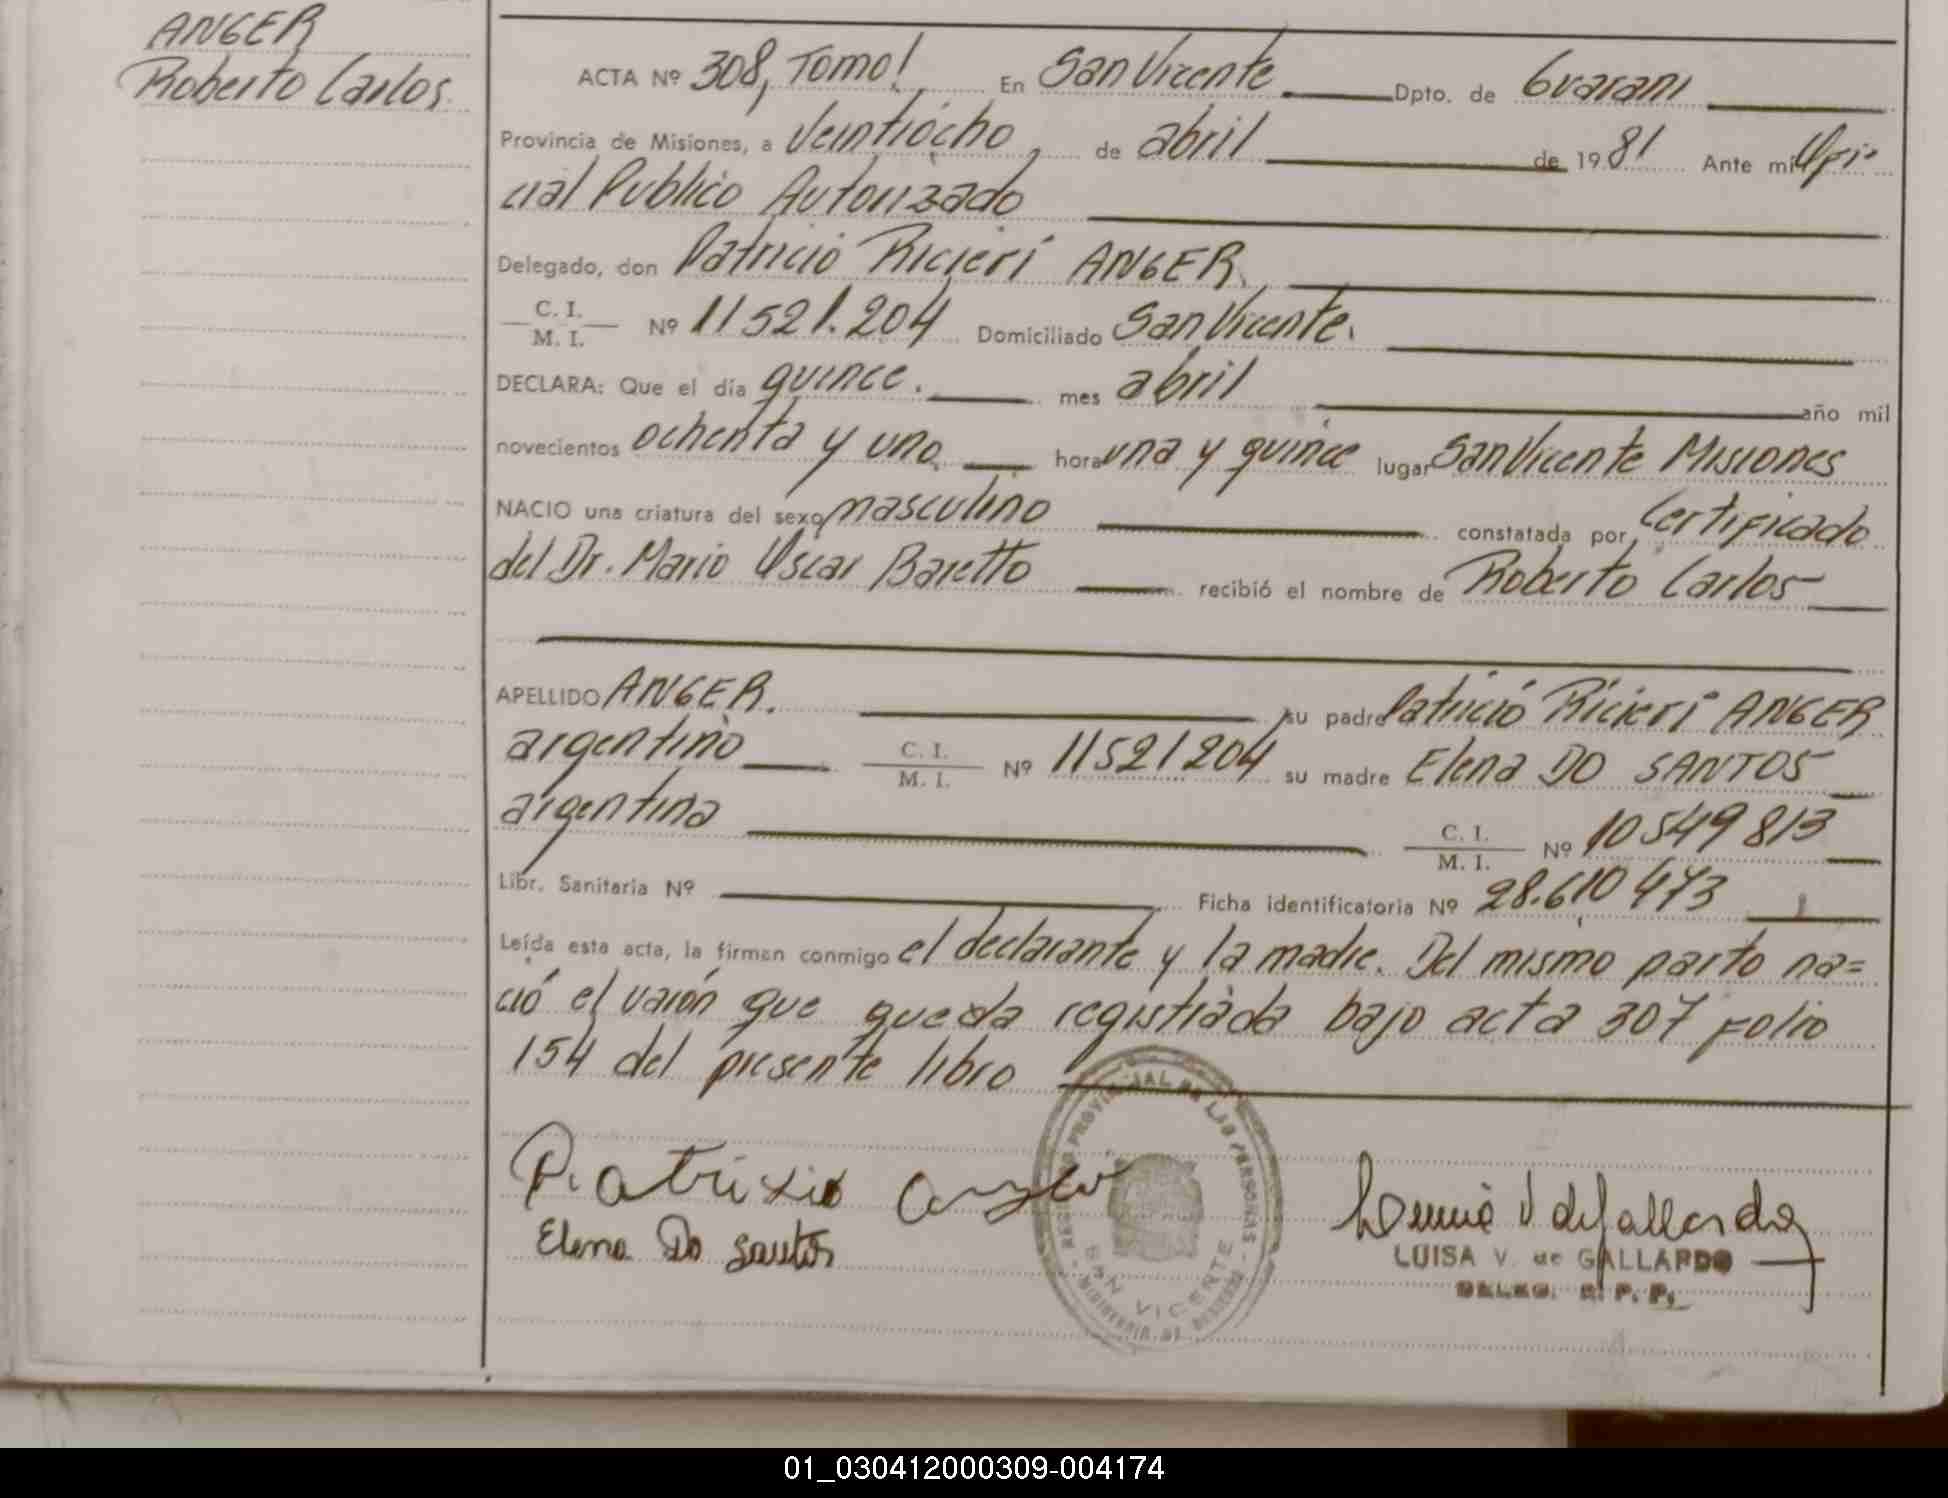 ANGER
Roberto Carlos.
ACTA Nº 308, Tomo I En San Vicente Dpto. de Guarani
Provincia de Misiones, a veintiocho, de abril de 1981 Ante mi Ofi-
cial Publico Autorizado
Delegado, don Patricio Ricieri ANGER.
C. I.
M. I. Nº 11521.204 Domiciliado San Vicente.
DECLARA: Que el día quince. mes abril año mil
novecientos ochenta y uno hora una y quince lugar San Vicente Misiones
NACIO una criatura del sexo masculino constatada por Certificado
del Dr. Mario Oscar Baretto recibió el nombre de Roberto Carlos
APELLIDO ANGER. su padre Patricio Ricieri ANGER
argentino C. I.
M. I. Nº 11521204 su madre Elena DO SANTOS
argentina C. I.
M. I. Nº 10549813
Libr. Sanitaria Nº Ficha identificatoria Nº 28.610473
Leída esta acta, la firman conmigo el declarante y la madre. Del mismo parto na=
ció el varón que queda registrada bajo acta 307 folio
154 del presente libro
Patrixio Anger
Elena Do Santos
REGISTRO PROVINCIAL DE LAS PERSONAS
SAN VICENTE
Luisa V de Gallardo
LUISA V. de GALLARDO
DELEG. R. P. P.
01_030412000309-004174